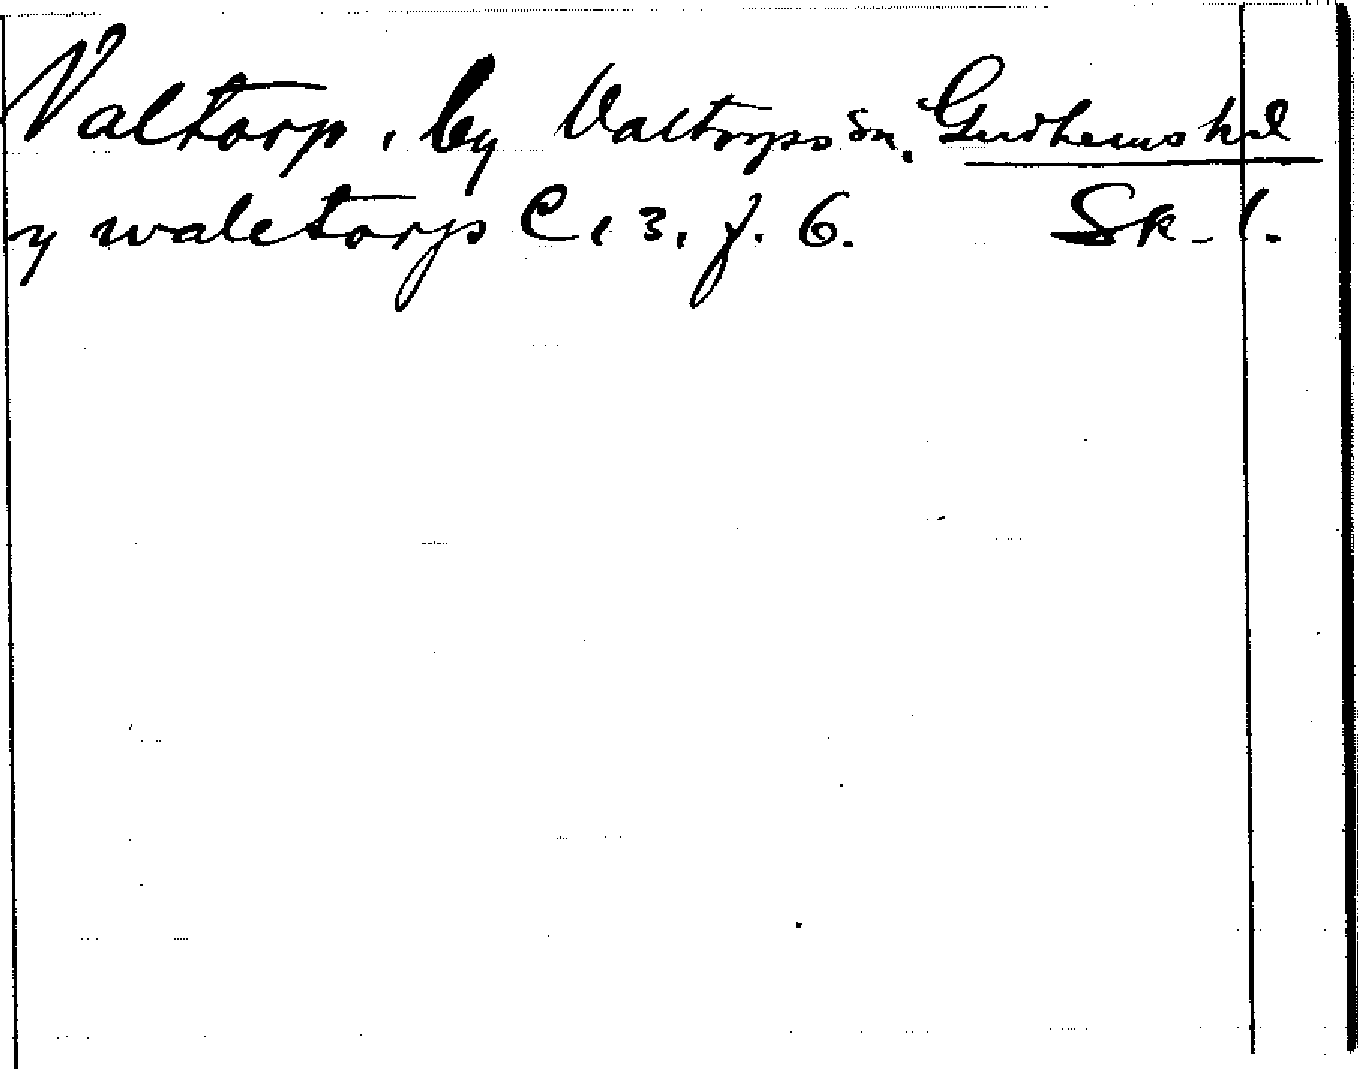 Valtorp, by Valtorps sn. Gudhems hd
y waletorp C 13, f. 6. Sk. l.